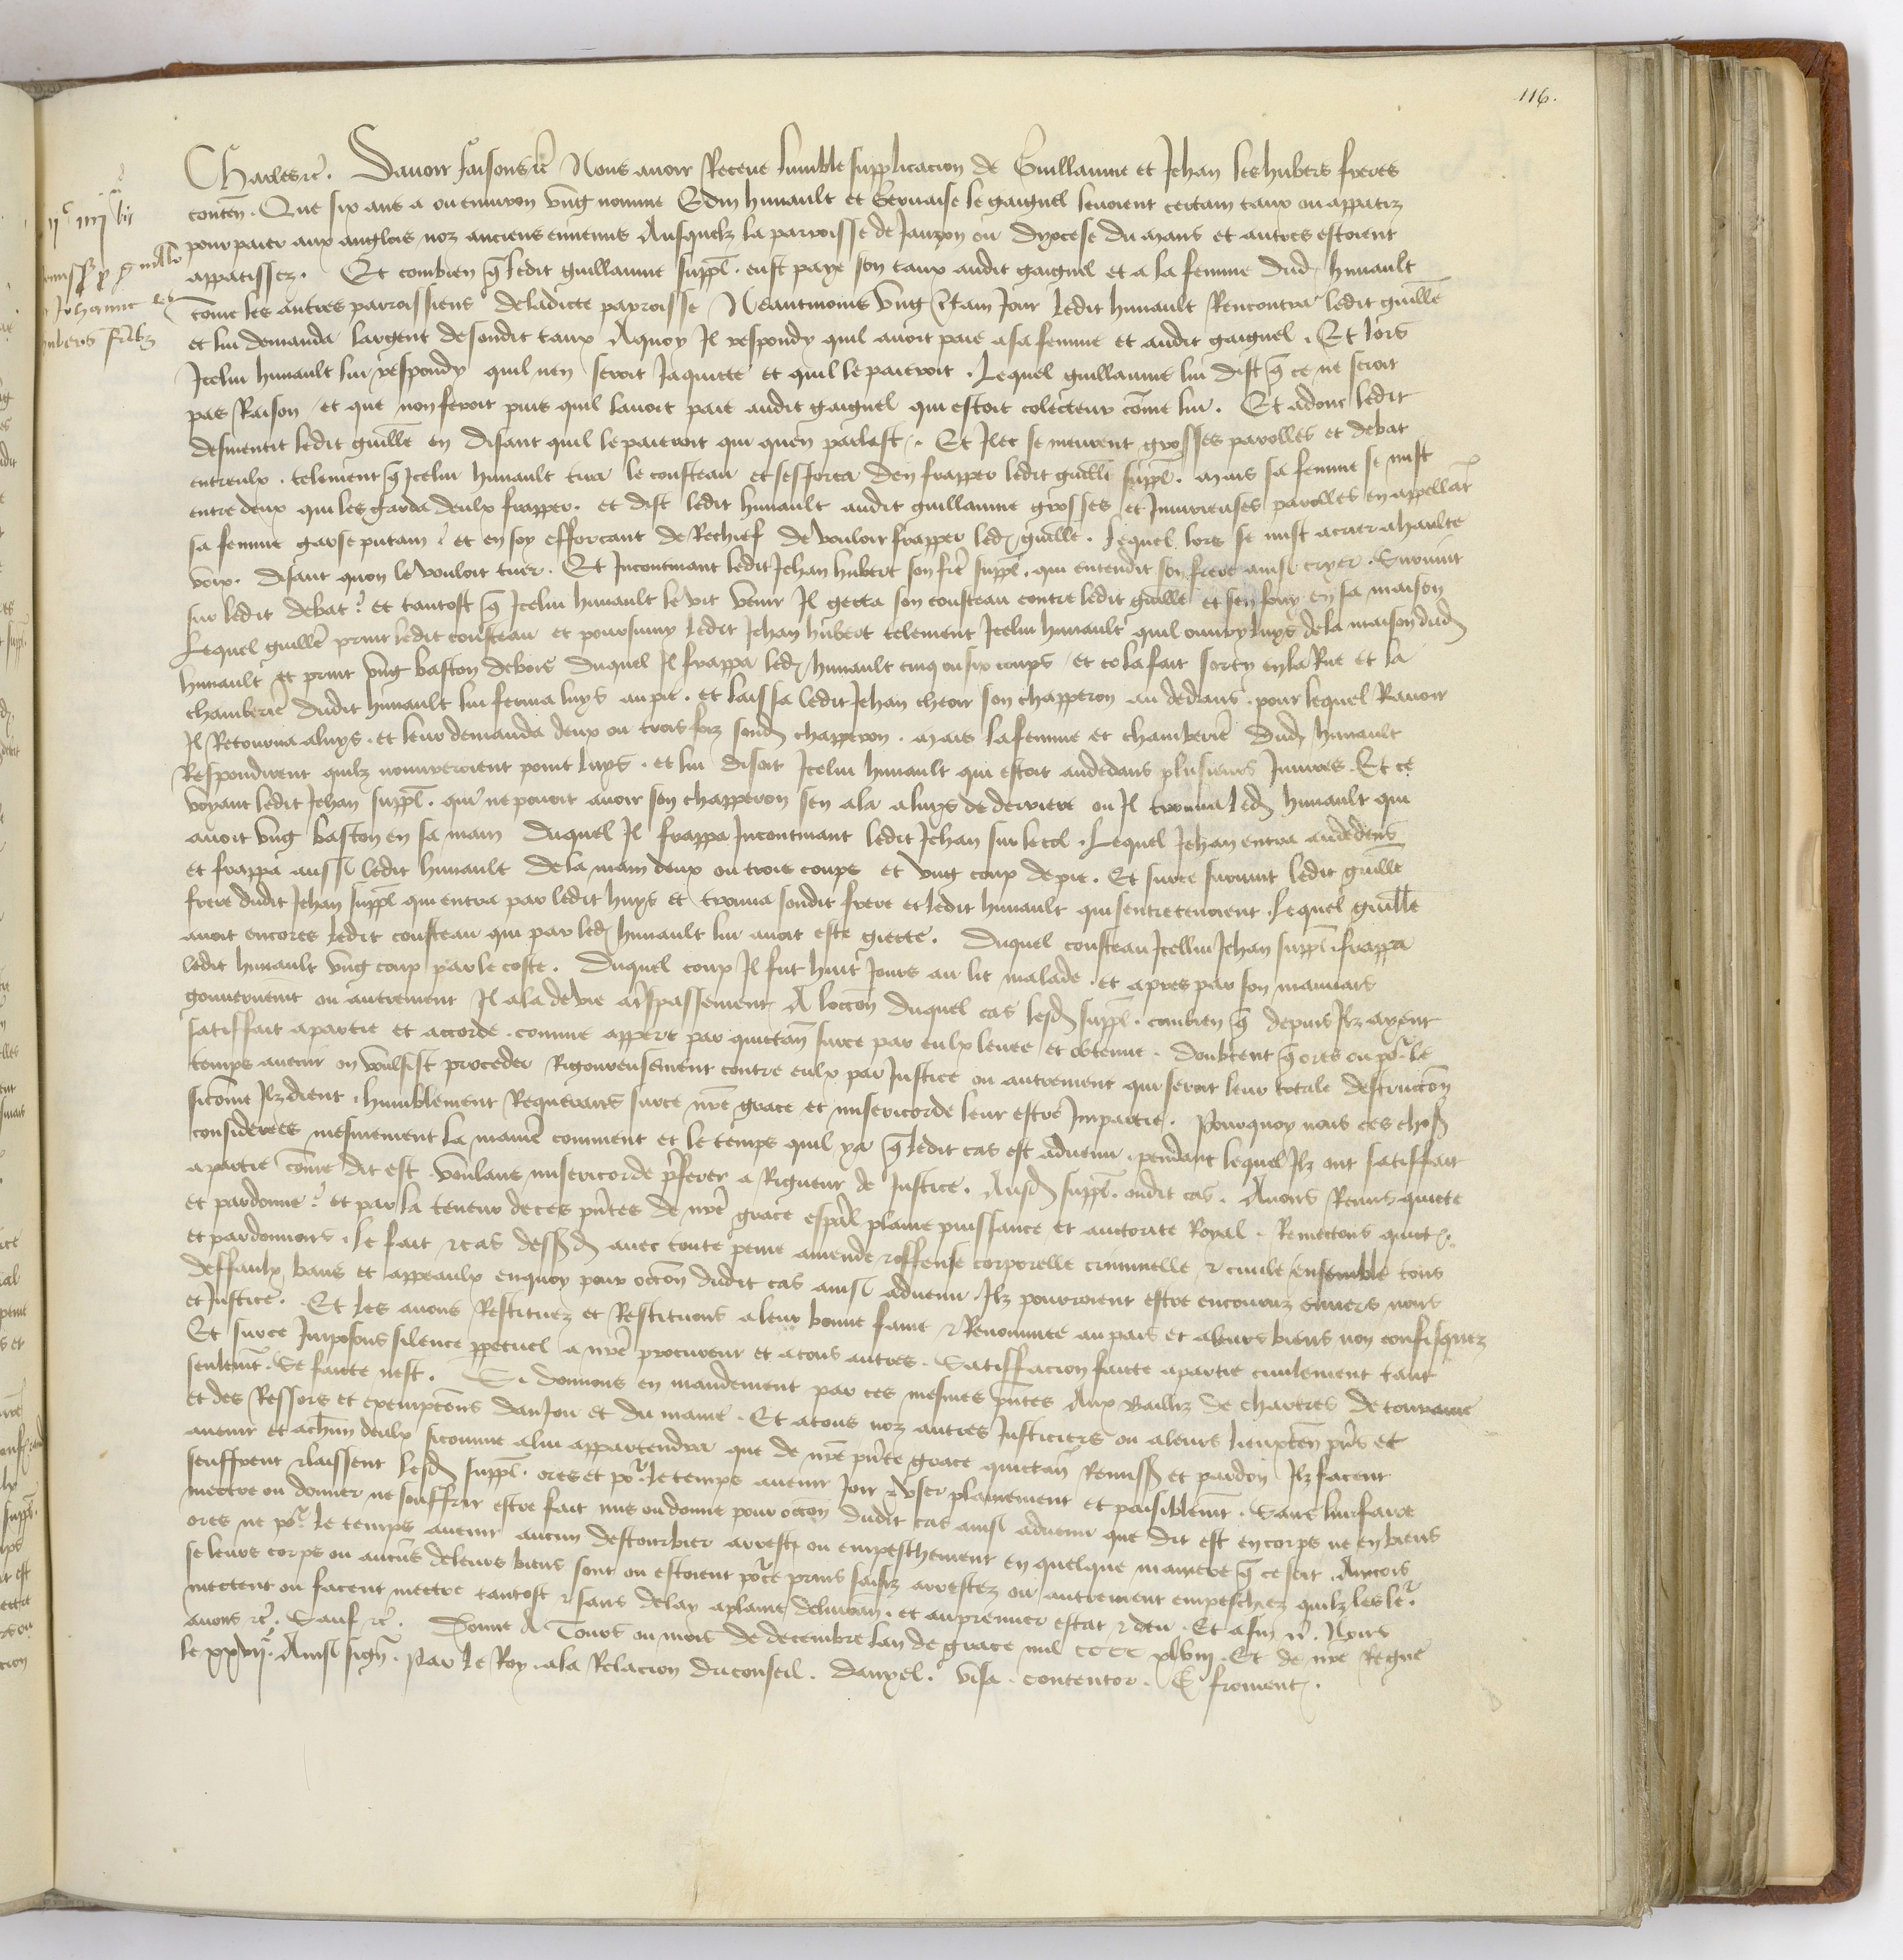 116.
Charles etc. Savoir faisons etc Nous avoir Receue lumble supplicacion de Guillaume et Jehan les hubers freres
conten. Que six ans a ou environ ung nomme Edin hunault et Gervaise le gaignel levoient certain taux ou appatiz
pour paier aux anglois noz anciens ennemis Ausquelz la parroisse de Jauzon ou dyocese du mans et autres estoient
appatissez. Et combien q̃ ledit guillaume suppl. eust paye son taux audit gaignel et a la femme dud. hunault
cõme les autres parroissiens deladicte parroisse Neantmoins ung c̃tain Jour ledit hunault Rencontra ledit guillẽ
et lui demanda largent desondit taux Aquoy Il respondy quil avoit paie asa femme et audit gaignel. Et lors
Icelui hunault lui respondy quil nen seroit Ja quicte et quil le paieroit. Lequel guillaume lui dist q̃ ce ne seroit
pas Raison et que non feroit puis quil lavoit paie audit gaignel qui estoit colecteur cõme lui. Et adonc ledit
desmentit ledit guillẽ en disant quil le paieroit qui quen parlast. Et Ilec se meurent grosses parolles et debat
entreulx. telement q̃ Icelui hunault tira le cousteau et sefforca den frapper ledit guillẽ suppl. mais sa femme se mist
entre deux qui les garda deulx frapper. et dist ledit hunault audit guillaume grosses et Injurieuses parolles en appellãt
sa femme garse putain. et en soy efforcant de Rechief de vouloir frapper led. guillẽ. Lequel lors se mist acrier ahaulte
voix. disant quon le vouloit tuer. Et Incontinant ledit Jehan hubert son frẽ suppl. qui entendit son frere ainsi cryer. Survint
sur ledit debat. et tantost q̃ Icelui hunault le vit venir Il getta son cousteau contre ledit guillẽ et sen fouy en sa maison
Lequel guillẽ print ledit cousteau et poursuivy ledit Jehan hubert telement Icelui hunault quil ouvry luys dela maison dud.
hunault et print ung baston debois duquel Il frappa led. hunault cinq ou six coups et cela fait sorty en la Rue et la
chamberiẽ dudit hunault lui ferma luys au pie. et laissa ledit Jehan cheoir son chapperon au dedans. pour lequel Ravoir
Il Retourna aluys. et leur demanda deux ou trois foiz sond. chapperon. mais la femme et chamberiẽ dud. hunault
Respondirent quilz nouvreroient point luys. et lui disoit Icelui hunault qui estoit audedans plusieurs Injures. Et ce
voyant ledit Jehan suppl. qui ne povoit avoir son chapperon sen ala aluys de derriere ou Il trouva led. hunault qui
avoit ung baston en sa main duquel Il frappa Incontinant ledit Jehan sur le col. Lequel Jehan entra audedens
et frappa aussi ledit hunault dela main deux ou trois coups et ung coup depie. Et surce survint ledit guillẽ
frere dudit Jehan suppl qui entra par ledit huys et trouva sondit frere et ledit hunault qui sentretenoient. Lequel guillẽ
avoit encores ledit cousteau qui par led. hunault lui avoit este giette. Duquel cousteau Icellui Jehan suppl. frappa
ledit hunault ung coup par le coste. Duquel coup Il fut huit Jours au lit malade. et apres par son mauvais
gouvernemt ou autrement Il ala devie atrspassement A loccõn duquel cas lesd. suppl. combien q̃ depuis Ilz ayent
satisffait apartie et accorde. comme appert par quictãn surce par eulx levee et obtenue. doubtent q̃ ores ou pour le
temps avenir on voulsist proceder Rigoureusement contre eulx par Justice ou autrement qui seroit leur totale destruccõn
sicõme Ilz dient. humblement Requerans surce nrẽ grace et misericorde leur estre Impartie. Pourquoy nous ces chos.
considerees mesmement la maniẽ comment et le temps quil ya q̃ ledit cas est advenu. pendant lequel Ilz ont satisffait
apartie cõme dit est. voulans misericorde p̃ferer a Rigueur de Justice. Ausd. suppl. oudit cas. Avons Remis quicte
et pardonne. et par la teneur deces p̃ntes de nrẽ grace esp̃al plaine puissance et auctorite Royal. Remettons quict.
et pardonnons. le fait et cas dessusd. avec toute peine amende et offense corporelle criminelle et civile ensemble tous
deffaulx bans et appeaulx enquoy pour occõn dudit cas ainsi advenu Ilz pourroient estre encouruz envers nous
et Justice. Et les avons Restituez et Restituons a leur bonne fame et Renommee au pais et aleurs biens non confisquez
Et surce Imposons silence p̱petuel a nrẽ procureur et atous autres. Satisffacion faicte apartie civilement tant
seulemt. Se faicte nest. Si donnons en mandement par ces mesmes p̃ntes Aux bailliz de chartres de touraine
et des Ressors et exempcõns danjou et du maine. Et atous noz autres Justiciers ou aleurs lieuxtẽn p̃ns et
avenir et achũn deulx sicomme alui appartendra que de nrẽ p̃nte grace quictãn Remiss. et pardon Ilz facent
seuffrent et laissent lesd. suppl. ores et pour le temps avenir Joir et user plainement et paisiblemt. Sans leur faire
mectre ou donner ne souffrir estre fait mis ou donne pour occõn dudit cas ainsi advenu que dit est en corps ne en biens
ores ne pour le temps avenir aucun destourbier arrest ou empeschement en quelque maniere q̃ ce soit. Aincois
se leurs corps ou aucũs deleurs biens sont ou estoient pource prins saisiz arrestez ou autrement empeschez quilz les leur
mectent ou facent mectre tantost et sans delay aplaine delivrãn. et aupremier estat et deu. Et afin etc. Nous
avons etc. Sauf etc. Donne A Tours ou mois de decembre lan de grace mil cccc xlviij. Et de nrẽ Regne
le xxvije. Ainsi signe. Par le Roy. ala Relacion du conseil. Danyel. visa. contentor. E. froment.